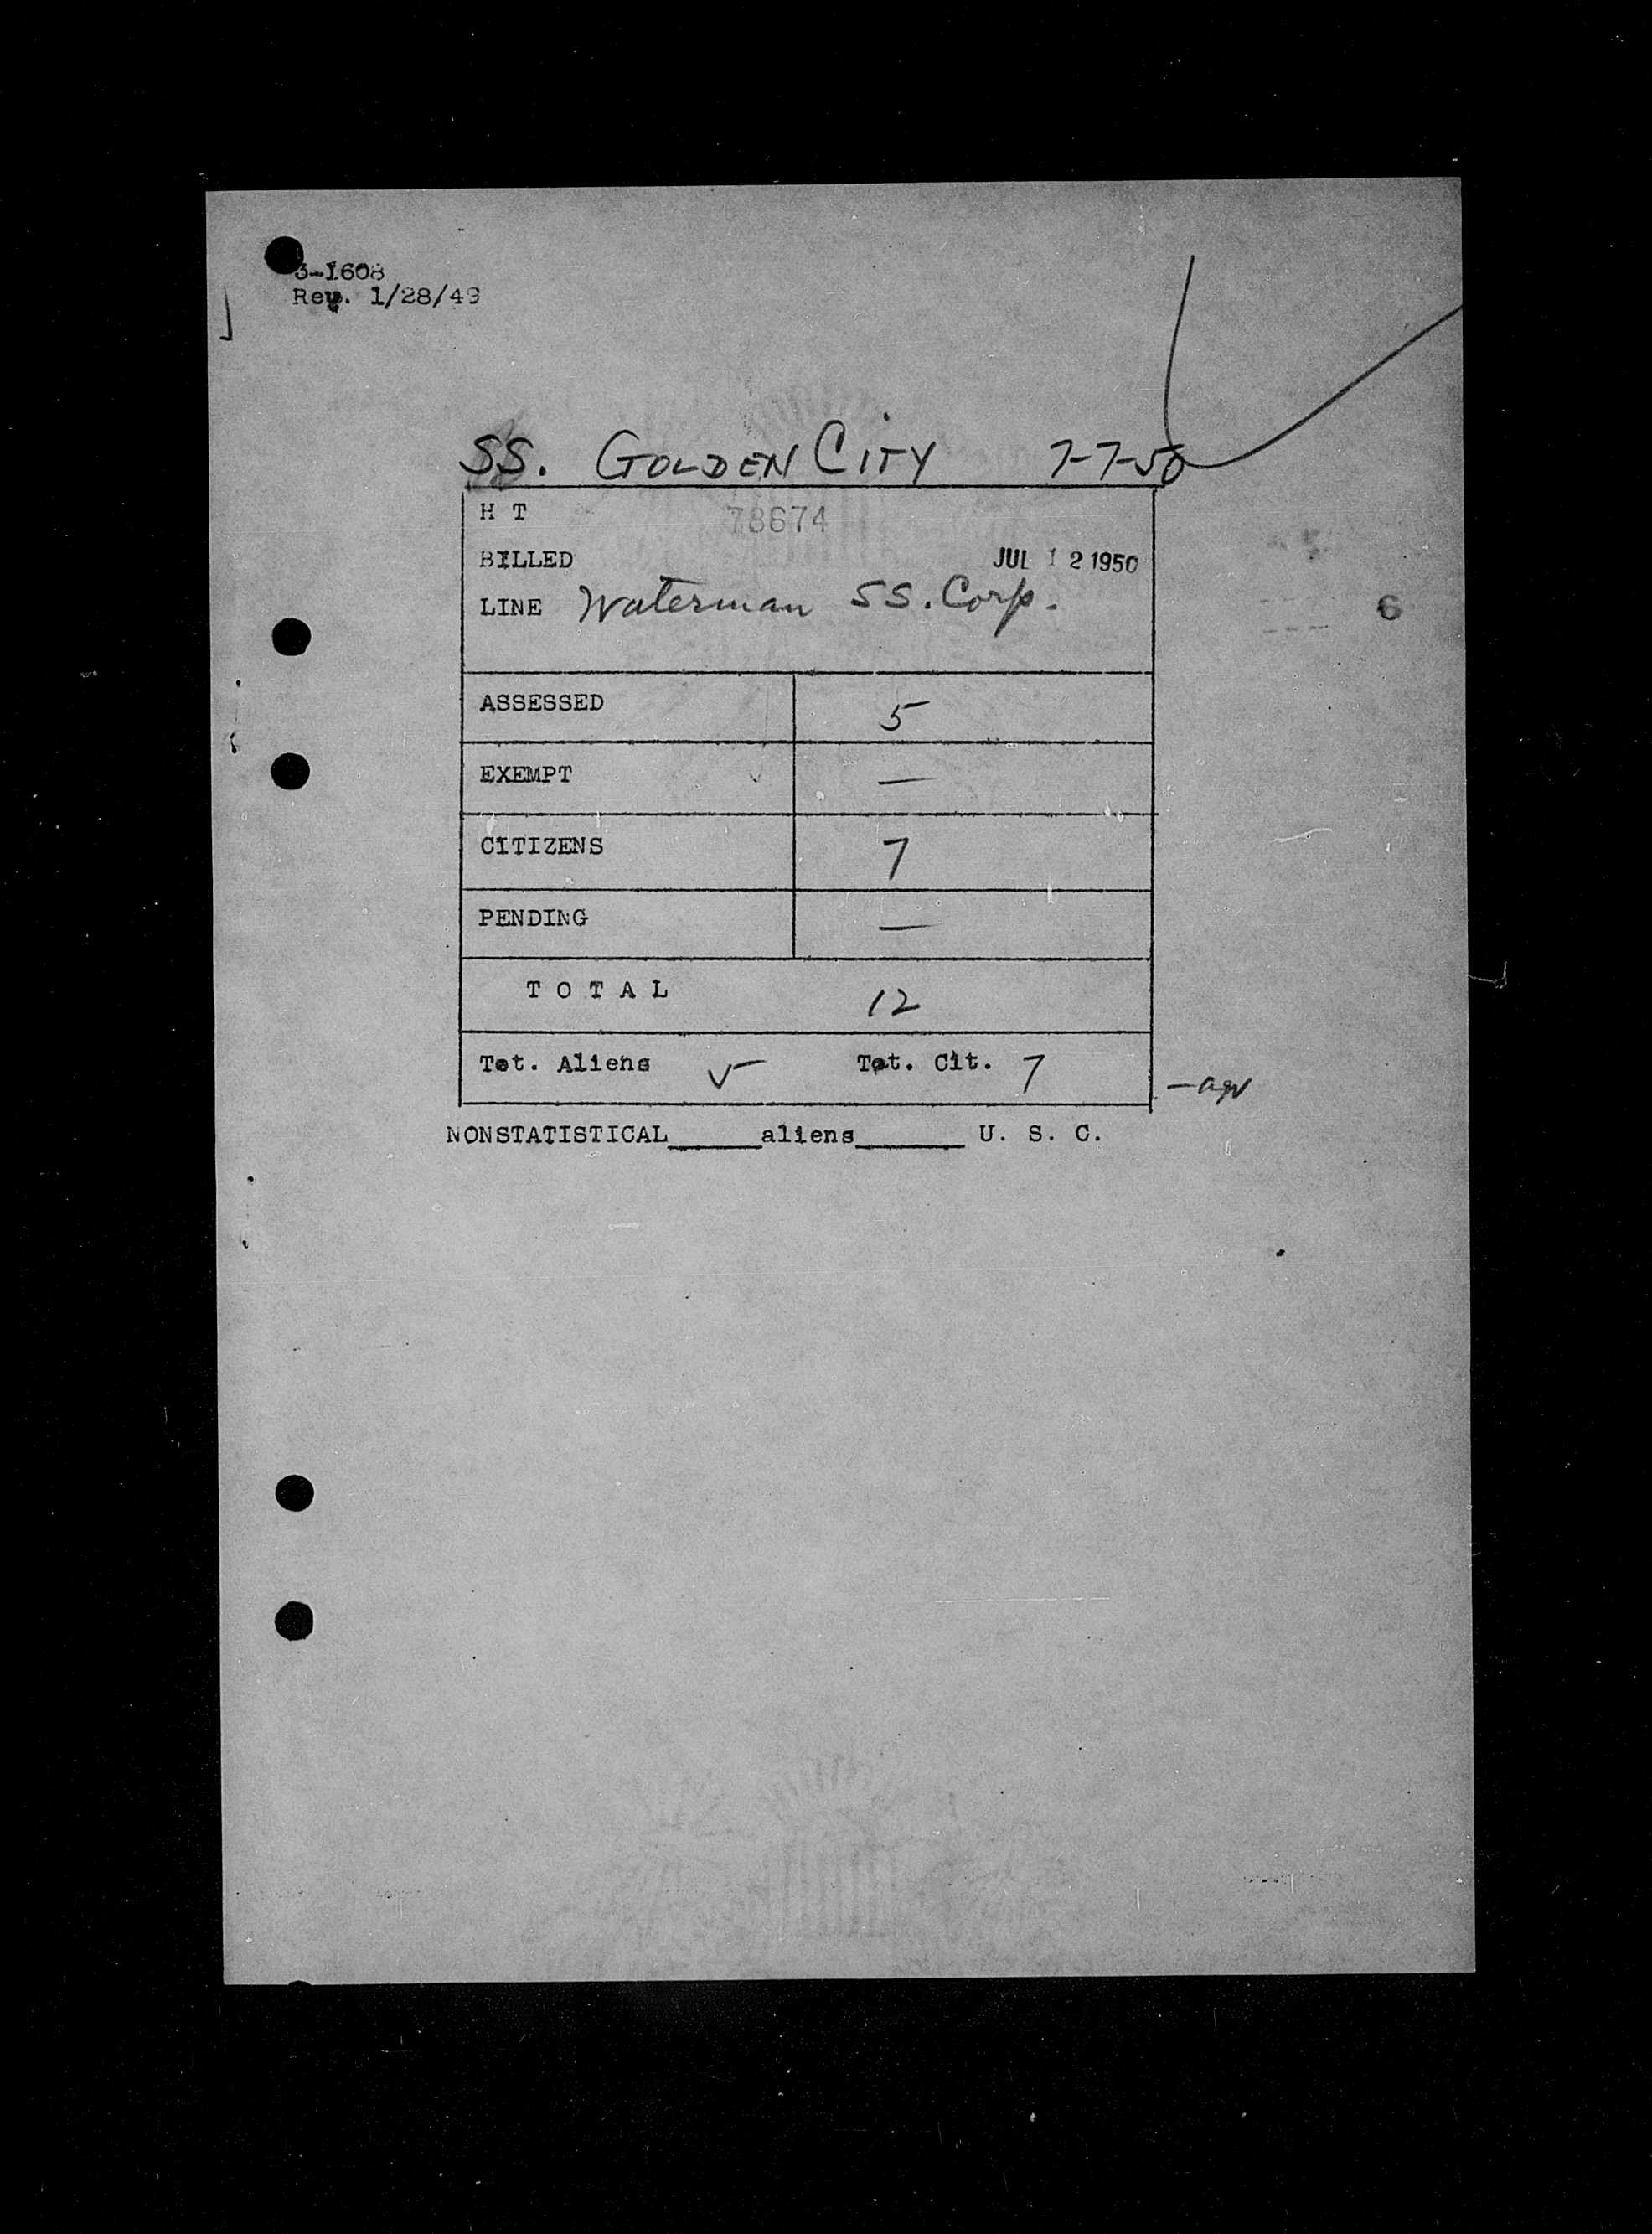 3-1608
Rev. 1/28/49
SS. GOLDEN CITY 7-7-50
H T 78674
BILLED JUL 12 1950
LINE Waterman SS. Corp.
6
ASSESSED 5
EXEMPT —
CITIZENS 7
PENDING —
T O T A L 12
Tot. Aliens 5 Tot. Cit. 7
NONSTATISTICAL_____aliens______ U. S. C.